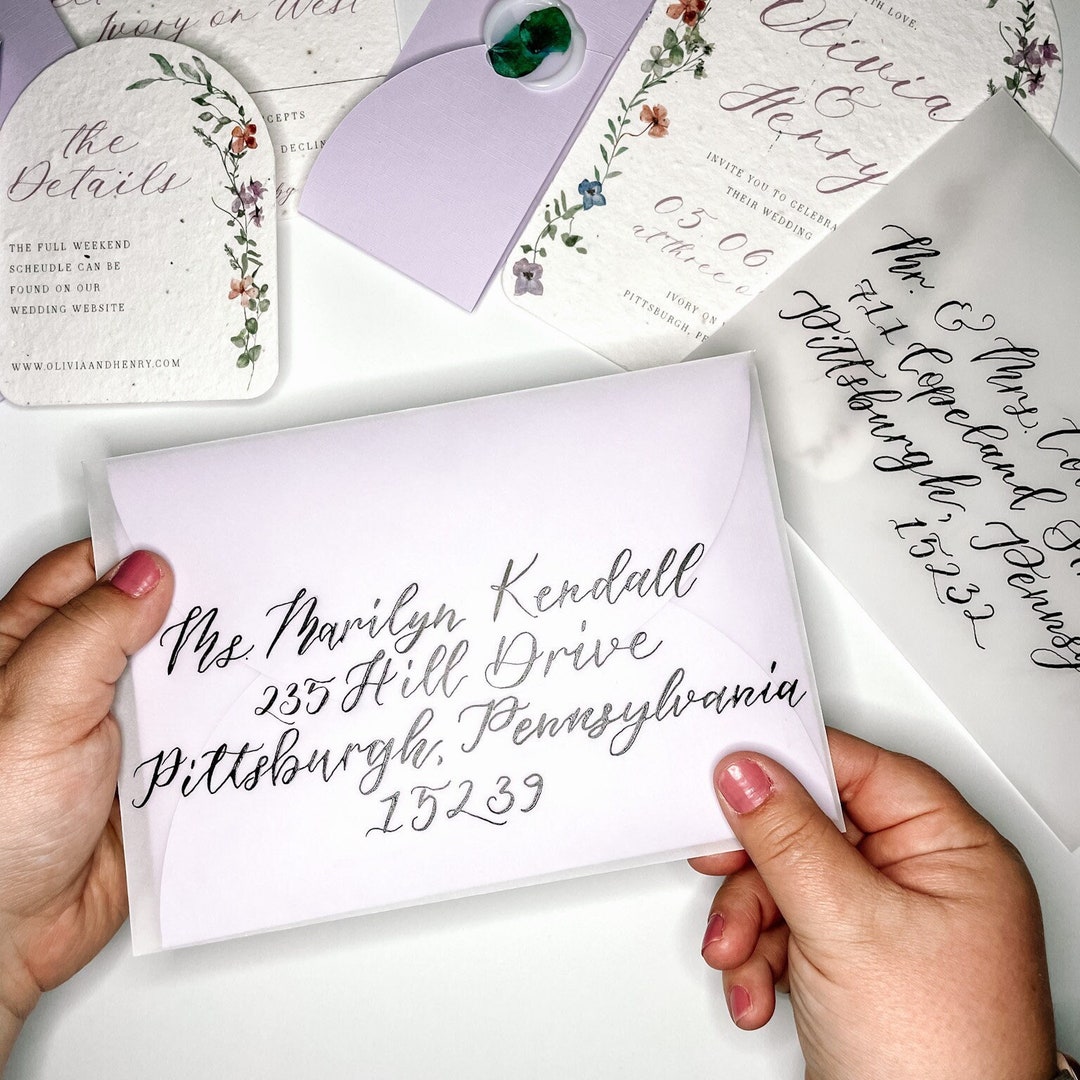 Ivory on West
CEPTS
DECLIN
by
the
Details
THE FULL WEEKEND
SCHEUDLE CAN BE
FOUND ON OUR
WEDDING WEBSITE
WWW.OLIVIAANDHENRY.COM
TH LOVE,
Olivia
&
Henry
INVITE YOU TO CELEBRA
THEIR WEDDING
05. 06.
at three o
IVORY ON
PITTSBURGH, PE
Mr. & Mrs. Co
711 Copeland S
Pittsburgh, Pennsy
15232
Ms. Marilyn Kendall
235 Hill Drive
Pittsburgh, Pennsylvania
15239